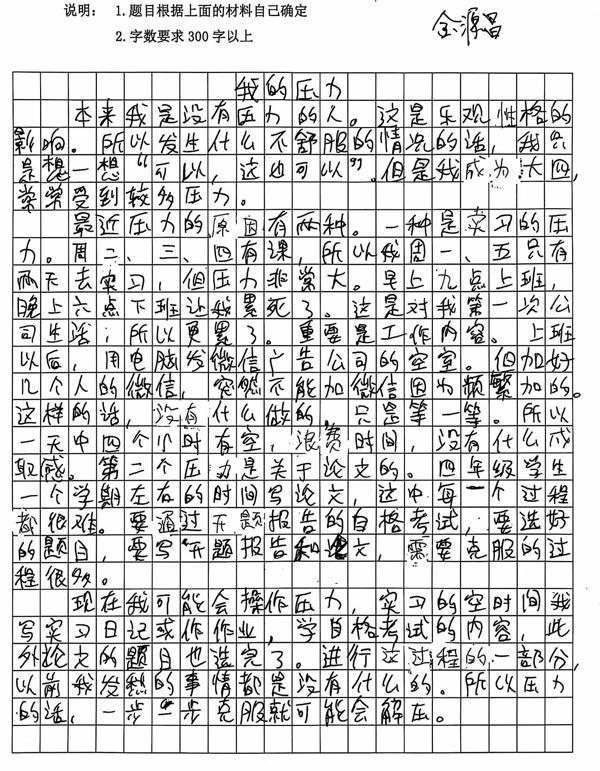 说明： 1.题目根据上面的材料自己确定
2.字数要求300字以上
金源昌
我的压力
本来我是没有压力的人。这是乐观性格的
影响。所以发生什么不舒服的情况的话，我只
是想一想“可以，这也可以”。但是我成为大四，
常常受到较多压力。
最近压力的原因有两种。一种是实习的压
力。周二、三、四有课，所以我周一、五只有
两天去实习，但压力非常大。早上九点上班，
晚上六点下班让我累死了。这是对我第一次公
司生活；所以更累了。重要是工作内容。上班
以后，用电脑发微信广告公司的空室。但加好
几个人的微信，突然不能加微信因为频繁加的。
这样的话，没有什么做的，只是等一等。所以
一天中四个小时有空，浪费时间，没有什么成
取感。第二个压力是关于论文的。四年级学生
一个学期左右的时间写论文，这中每一个过程
都很难。要通过开题报告的自格考试，要选好
的题目，要写开题报告和论文，需要克服的过
程很多。
现在我可能会操作压力，实习的空时间我
写实习日记或作作业，学自格考试的内容，此
外论文的题目也选完了。进行这过程的一部分，
以前我发愁的事情都是没有什么的。所以压力
的话，一步一步克服就可能会解压。